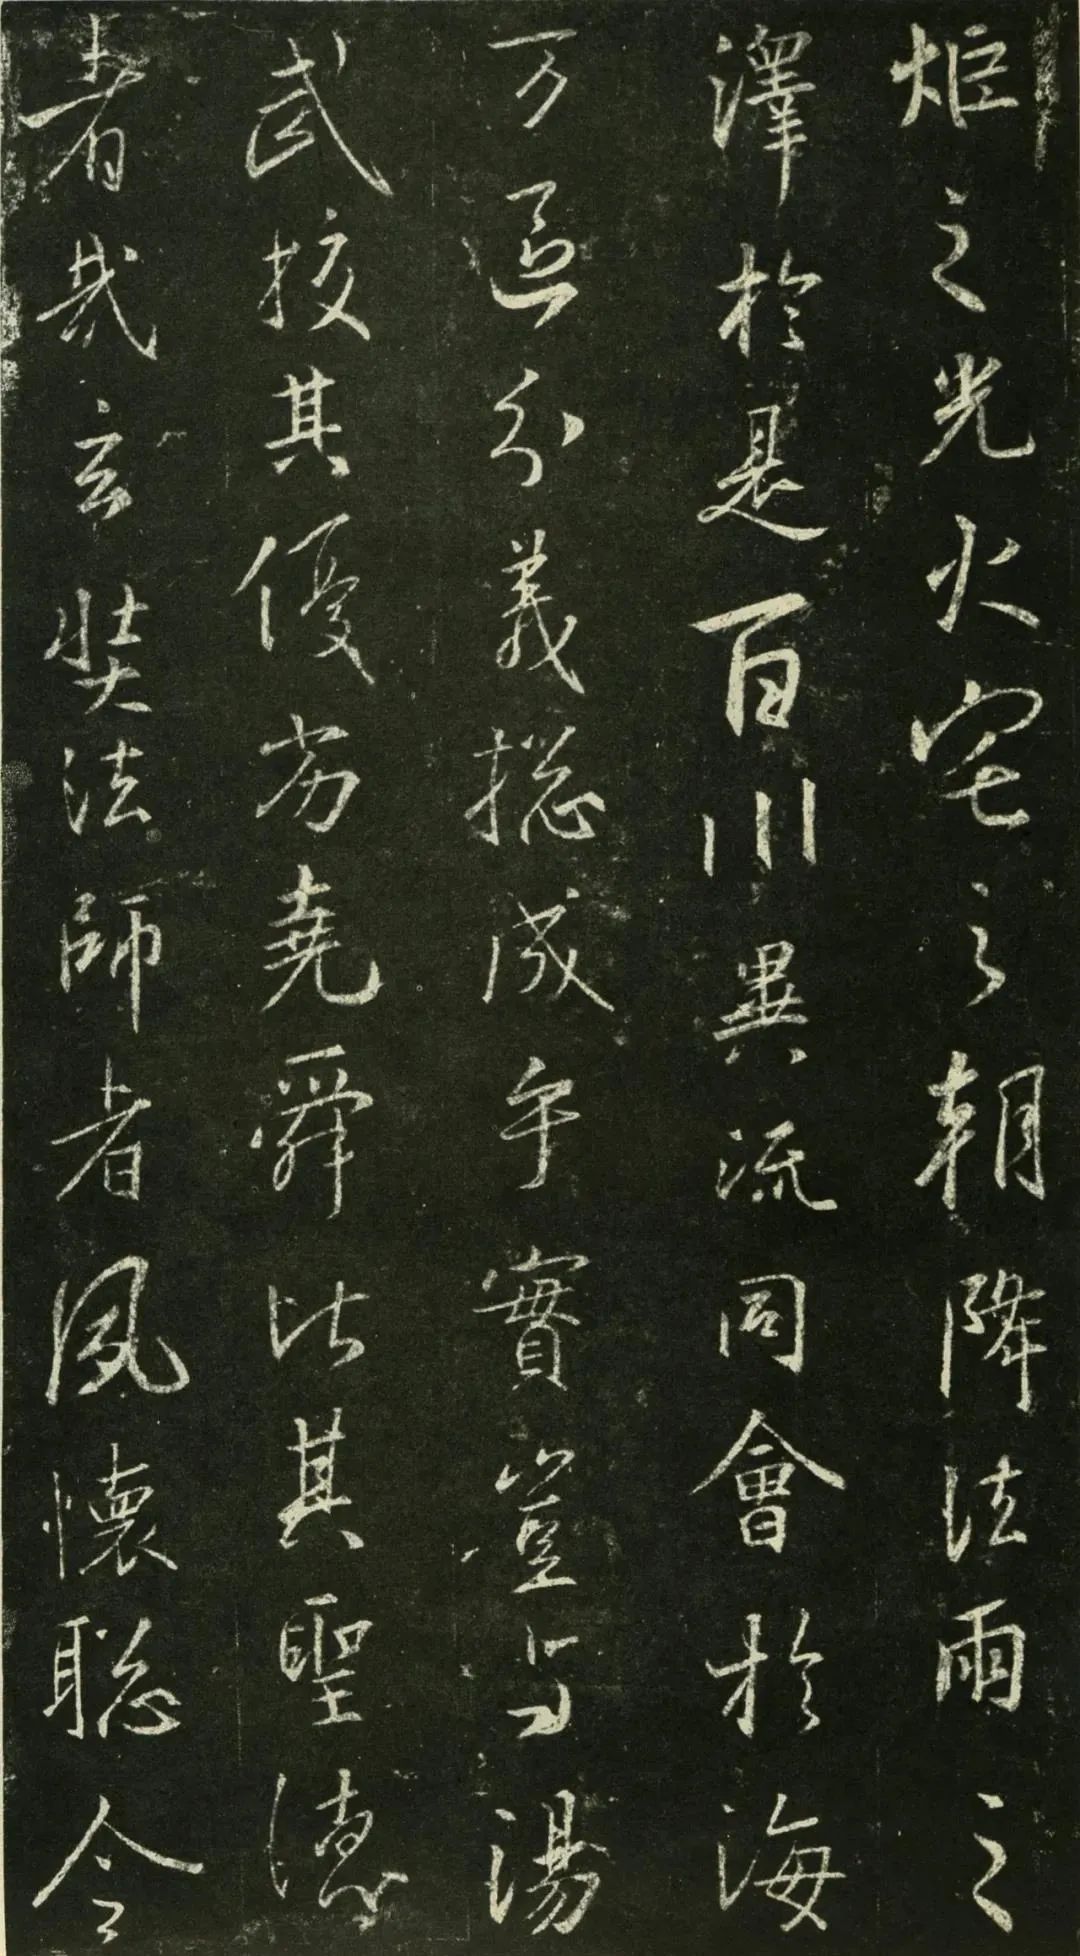 炬之光火宅之朝降法雨之
澤於是百川異流同會於海
万區分義揔成乎實豈与湯
武挍其優劣堯舜比其聖德
者哉玄奘法師者夙懷聡令